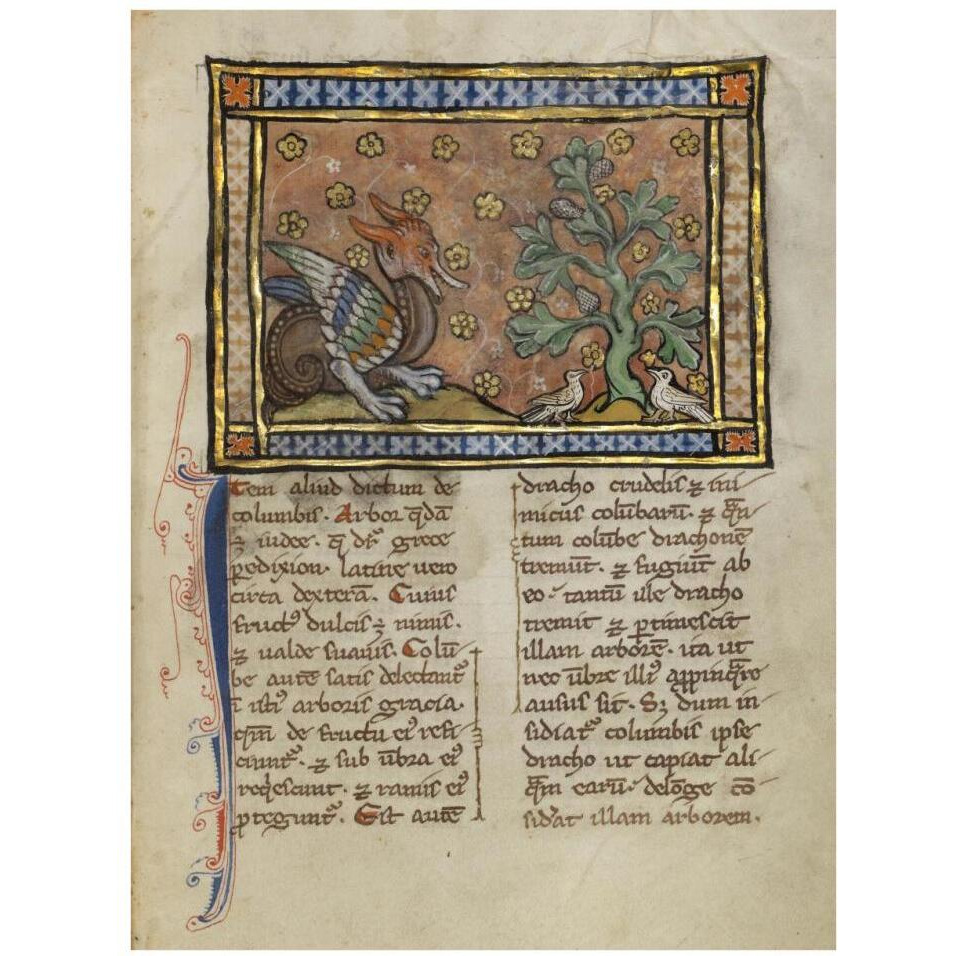 Item aliud dictum de
columbis. Arbor q̄dā
ē iudee. q̄ dr̄ grece
ꝑedixion. latine uero
circa dexterā. Cuius
fructꝰ dulcis ē nimis.
⁊ ualde suauis. Colū
be autē satis delectantᷓ
ī istiꝰ arboris gracia.
qm̄ de fructu eiꝰ refi
ciuntᷓ. ⁊ sub ūbra eiꝰ
reqͥescunt. ⁊ ramis eiꝰ
ꝓteguntᷓ. Est autē
dracho crudelis ⁊ ini
micus colūbarū. ⁊ qᷓn
tum colūbe drachonē
tremūt. ⁊ fugiūt ab
eo. tantū ille dracho
tremit ⁊ ꝑtimescit
illam arborē. ita ut
nec ūbre illiꝰ apꝓpinqᷓre
ausus sit. Sꝫ dum in
sidiatᷓ columbis ipse
dracho ut capiat ali
qᷓm earū. delōge cō
sidāt illam arborem.